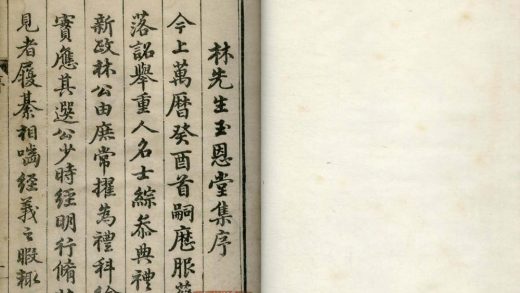 林先生玉恩堂集序
今上萬曆癸酉首嗣曆服
落詔舉重人名士綜叅典禮
新政林公由庶常擢為禮科
實應其選公少時經明行脩
見者履綦相噛經義之暇輙